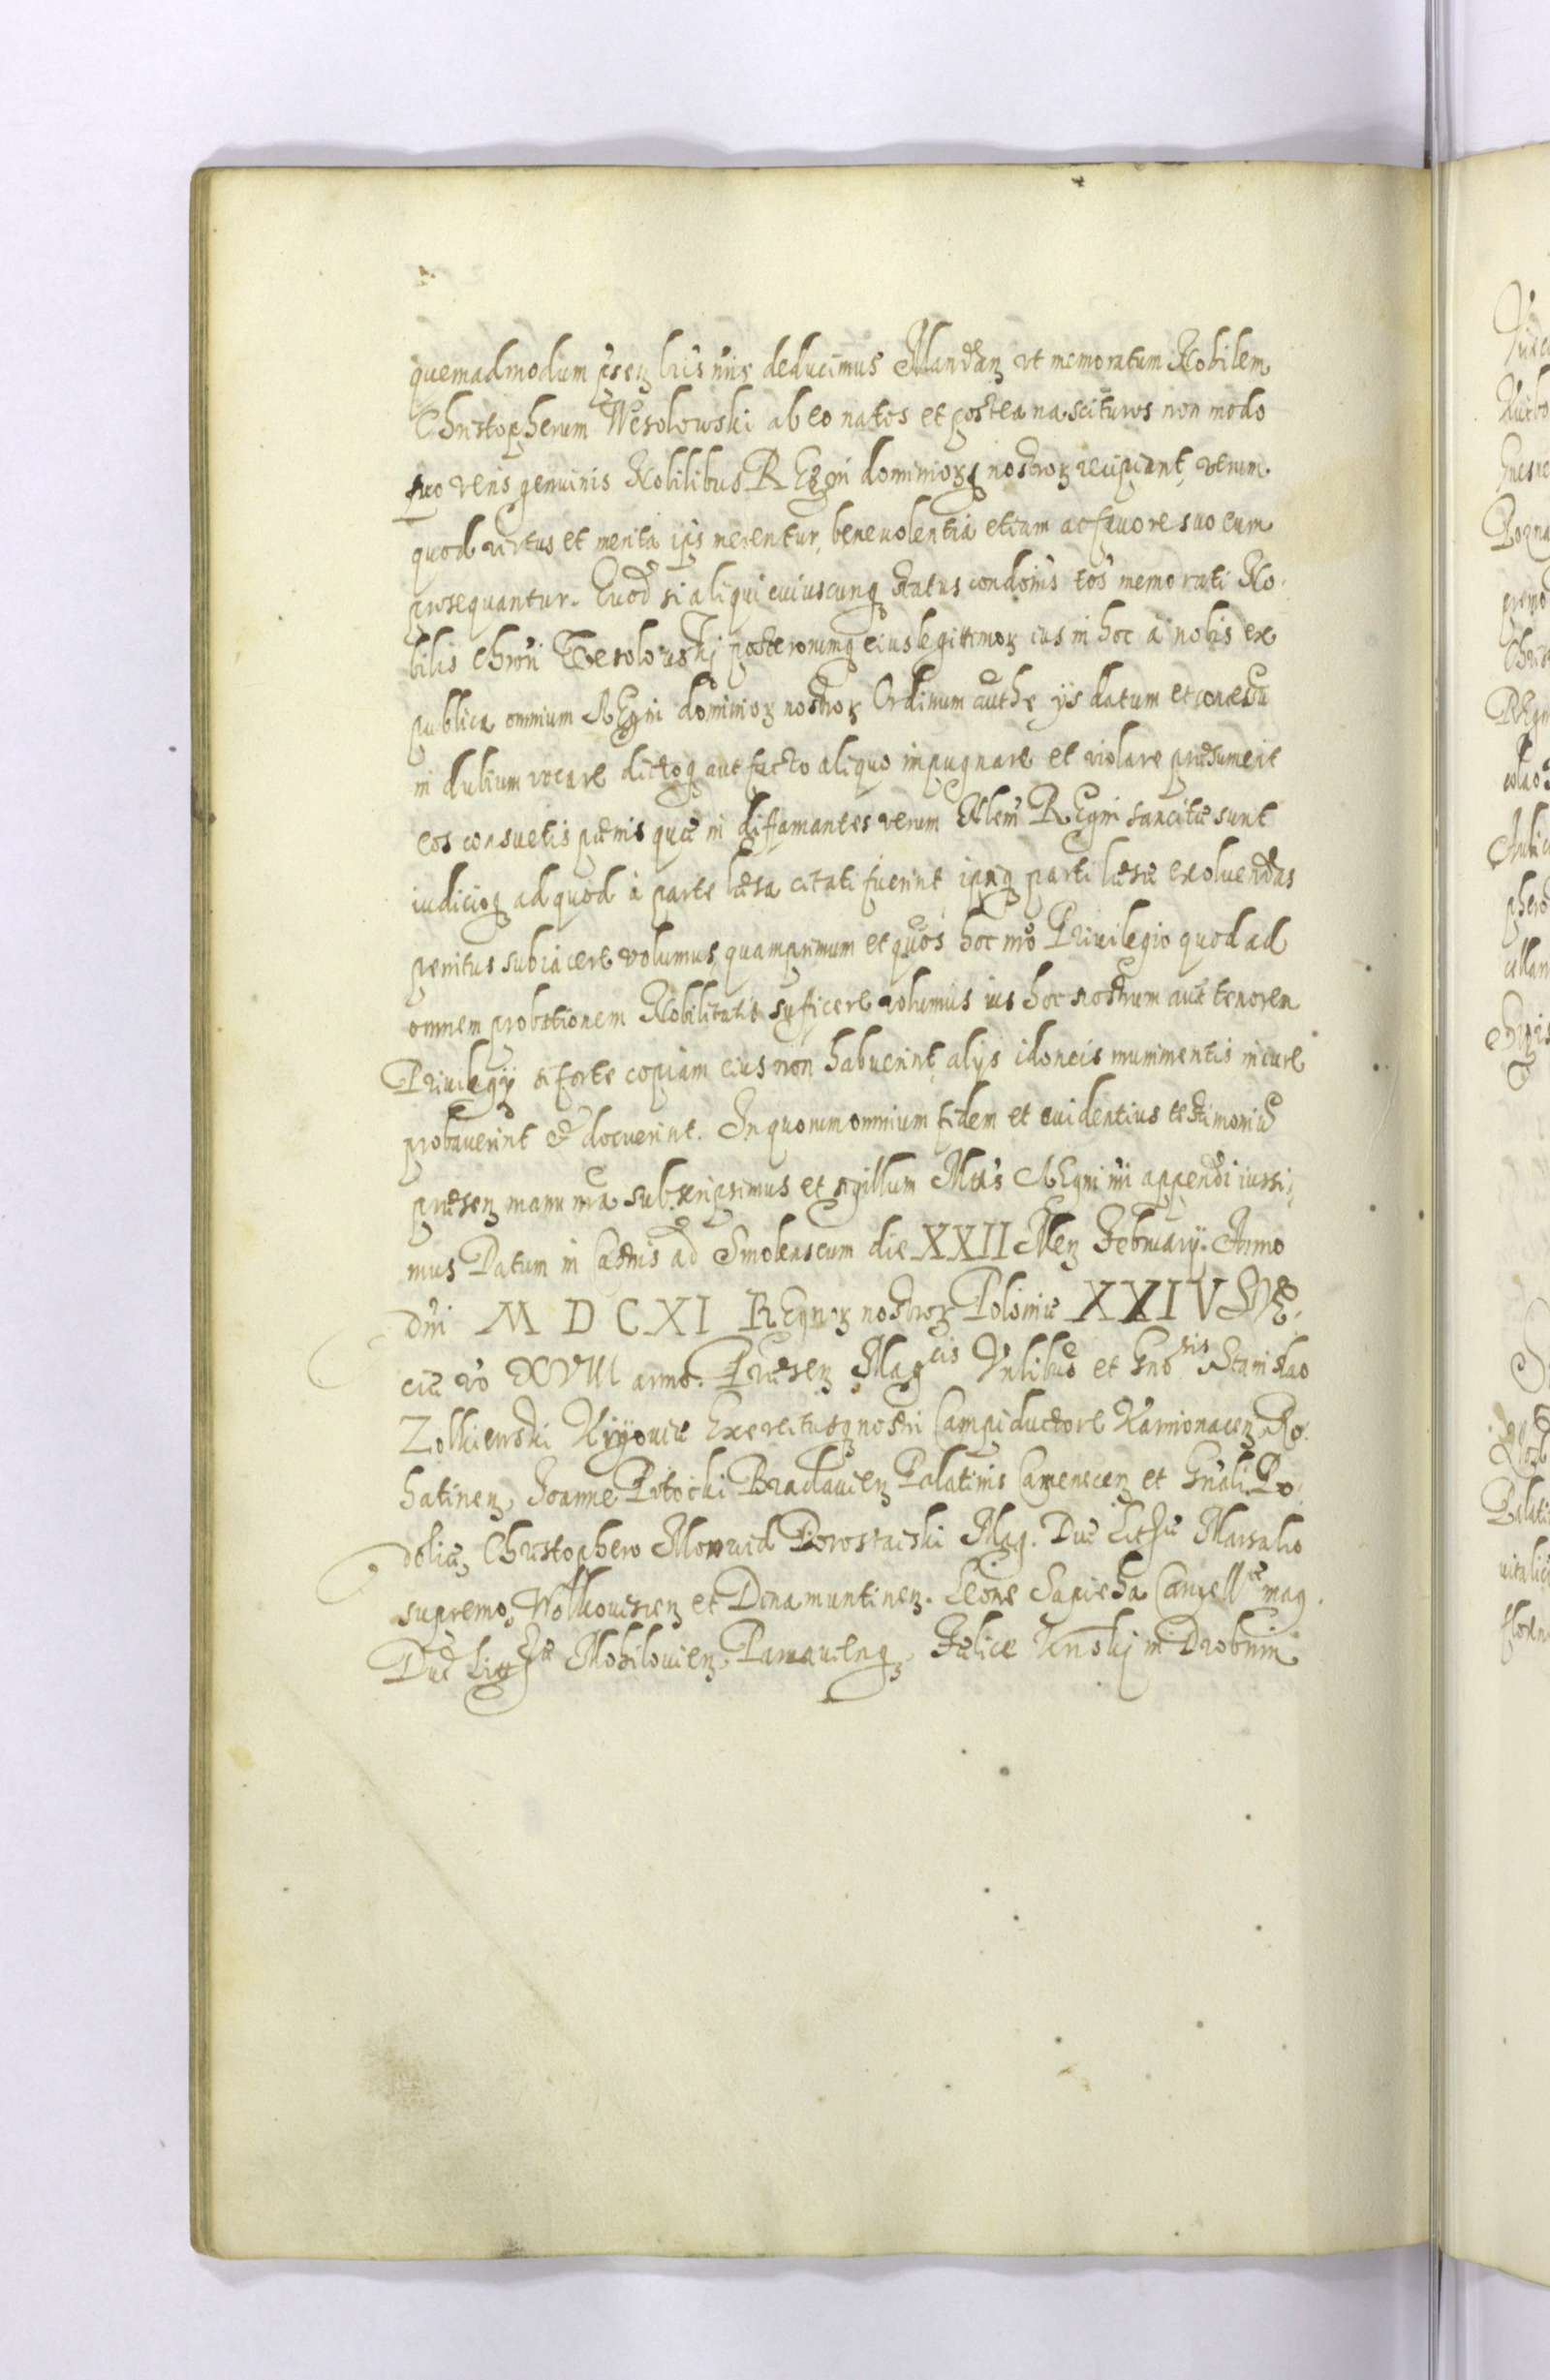 quemadmodum pseꝫ lris nris deducimus Mandaꝫ vt memoratum Nobilem
Christopherum Wesolowski ab eo natos et postea nascituros non modo
pro veris genuinis Nobilibus REgni dominioꝝqꝫ nostroꝝ recipiant, verum
quod virtus et merita ipsius merentur, beneuolentia etiam ac fauore suo eum
prosequantur. Quod si aliqui cuiuscunqꝫ status condonis tos memorati No-
bilis Chroni Wesolowskij posterorumqꝫ eius legittimoꝝ ius in hoc a nobis ex
publica omnium REgni dominioꝝ nostroꝝ Ordinum authe ijs datum et concessu
in dubium vocare dictoqꝫ aut facto aliquo impugnare et violare præsumerit
eos consuetis pœnis quæ in diffamantes verum Nlem REgni sancitæ sunt
iudicioqꝫ ad quod a parte læsa citati fuerint ipsiqꝫ parti læsæ exoluendas
penitus subiacere volumus quamprimum et quos hoc nro Priuilegio quod ad
omnem probationem Nobilitatis suficere volumus ius hoc nostrum aut tenorem
Priuilegij si forte copiam eius non habuerint, alijs idoneis munimentis in iure
probauerint & docuerint. In quorum omnium fidem et euidentius testimoniũ
præseꝫ manu nra subscripsimus et sigillum Mtis REgni nri appendi iussi-
mus Datum in Castris ad Smolenscum die XXII Meꝫ February. Anno
Dni M D C XI REgnoꝝ nostroꝝ Poloniæ XXIV SVE-
ciæ vo XVIII anno. Præseꝫ Magcis Vnlibus et Gnosis Stanislao
Zolkiewski Kijouiæ Exercitusqꝫ nostri Campiductore Kamionaceꝫ Ro-
hatineꝫ, Joanne Potocki Braclauieꝫ Palatinis Cameneceꝫ et Gnali Po-
doliæ, Christophero Monuid Dorostaiski Mag. Duc Lithæ Marsalco
supremo, Wolkouiscieꝫ et Dinamuntineꝫ. Leone Sapieha Cancellre mag.
Duc Litthæ Mohilouieꝫ, Parnauieꝫqꝫ Felice Krÿski in Drobnin